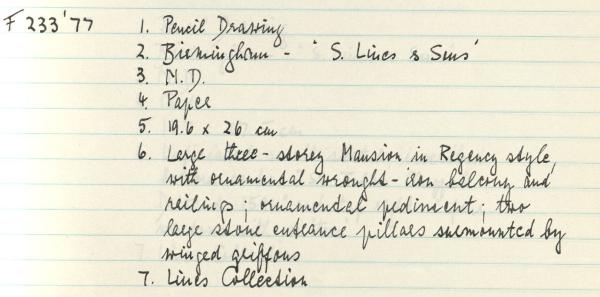 F 233'77 1. Pencil Drawing
2. Birmingham - 'S. Lines & Sons'
3. N.D.
4. Paper
5. 19.6 x 26 cm
6. Large three-storey Mansion in Regency style,
with ornamental wrought-iron balcony and
railings; ornamental pediment; two
large stone entrance pillars surmounted by
winged griffons
7. Lines Collection